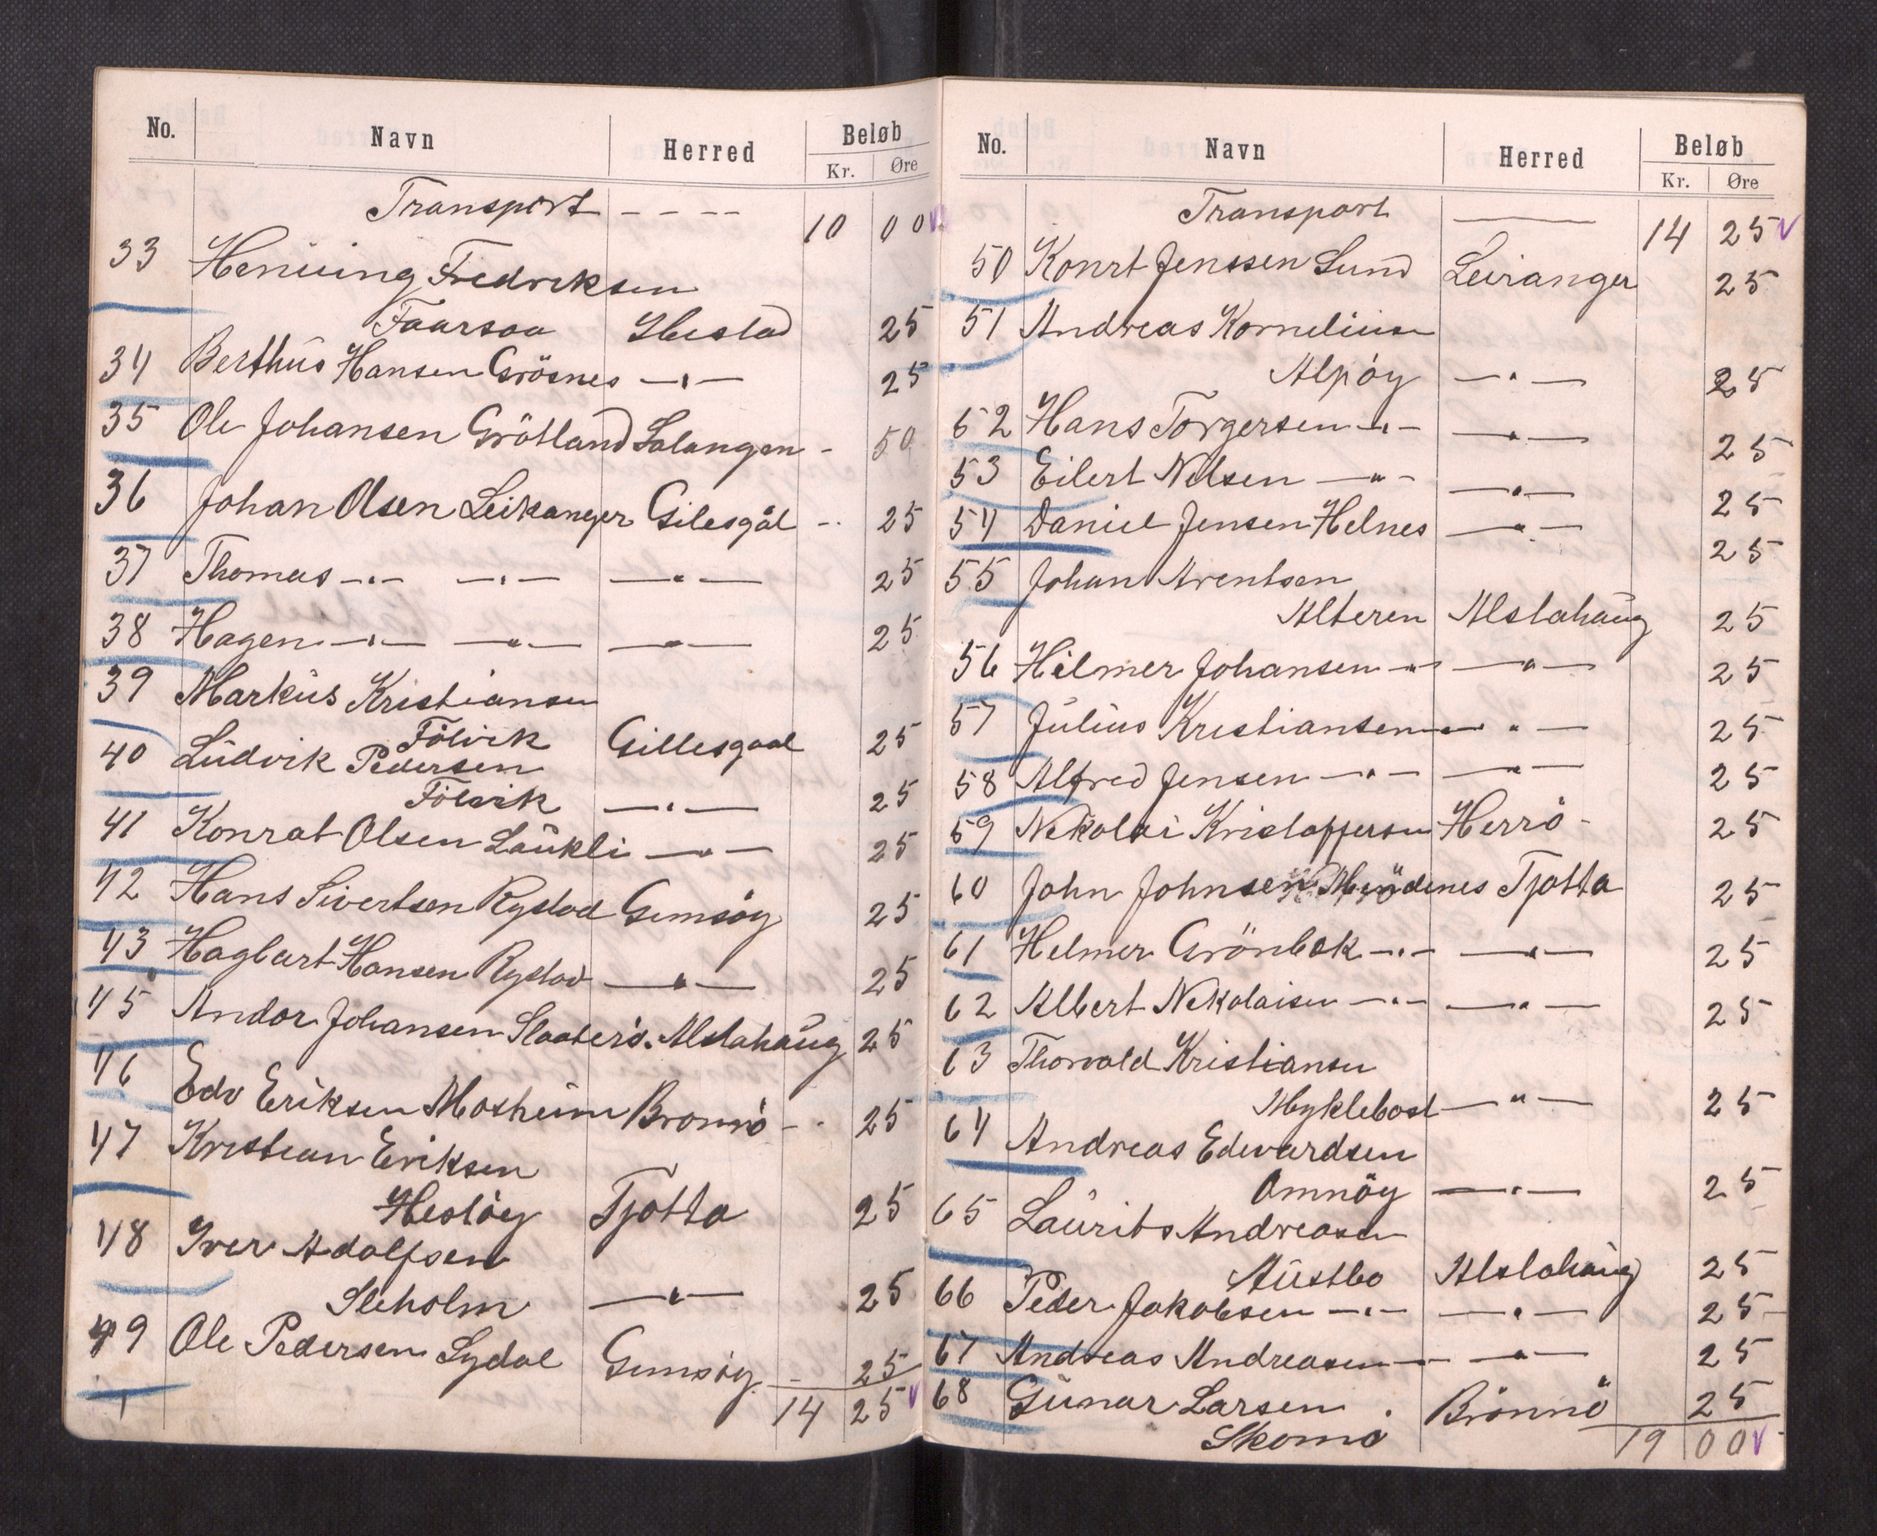 No. Navn Herred Beløb
Kr. Øre
Transport - - - - 10 00
33 Henning Fredriksen
Faarsaa Ibestad 25
34 Berthus Hansen Grösnes —"— 25
35 Ole Johansen Grötland Salangen - 50
36 Johan Olsen Leikanger Gilesgål - 25
37 Thomas —"— —"— —"— 25
38 Hagen —"— —"— —"— 25
39 Markus Kristiansen
Fölvik Gillesgaal 25
40 Ludvik Pedersen
Fölvik —"— 25
41 Konrat Olsen Laukli —"— 25
42 Hans Sivertsen Rystad Gimsöy 25
43 Hagbart Hansen Rystad —"— 25
45 Andor Johansen Slaaterö. Alstahaug 25
46 Edv Eriksen Mosheim Bronnö - 25
47 Kristian Eriksen
Hestöy Tjotta 25
48 Iver Adolfsen
Sleholm —"— 25
49 Ole Pedersen Sydal Gimsöy - 25
14 25
No. Navn Herred Beløb
Kr. Øre
Transport — 14 25
50 Konrt Jenssen Sund Leiranger 25
51 Andreas Korneliusen
Alpöy —"— 25
52 Hans Torgersen —"— —"— 25
53 Eilert Nilsen —"— —"— 25
54 Daniel Jensen Helnes —"— 25
55 Johan Arentsen
Alteren Alstahaug 25
56 Hilmer Johansen —"— —"— 25
57 Julius Kristiansen — —"— 25
58 Alfred Jensen —"— —"— 25
59 Nikolai Kristoffersen Herrö - 25
60 John Johnsen Mindenes Tjotta 25
61 Helmer Grönbek —"— —"— 25
62 Albert Nikolaisen —"— —"— 25
63 Thorvald Kristiansen
Myklebost —"— 25
64 Andreas Edvardsen
Omnöy —"— 25
65 Laurits Andreasen
Austbo Alstahaug 25
66 Peder Jakobsen —"— —"— 25
67 Andreas Andreasen — —"— 25
68 Gunar Larsen . Brönnö 25
Skomo 19 00